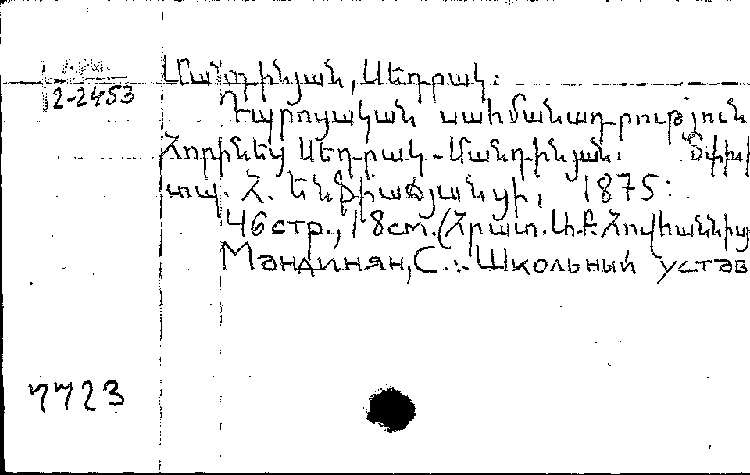 2-2453
Մանդինյան, Սեդրակ:
Դպրոցական սահմանադրություն
Հորինեց Սեդրակ Մանդինյան. Տփխ
տպ. Հ. Էնֆիաճյանցի, 1875:
46 стр., 18 см. (Հրատ. Հովհաննիս
Мандинян, С.: Школьный устав
7723